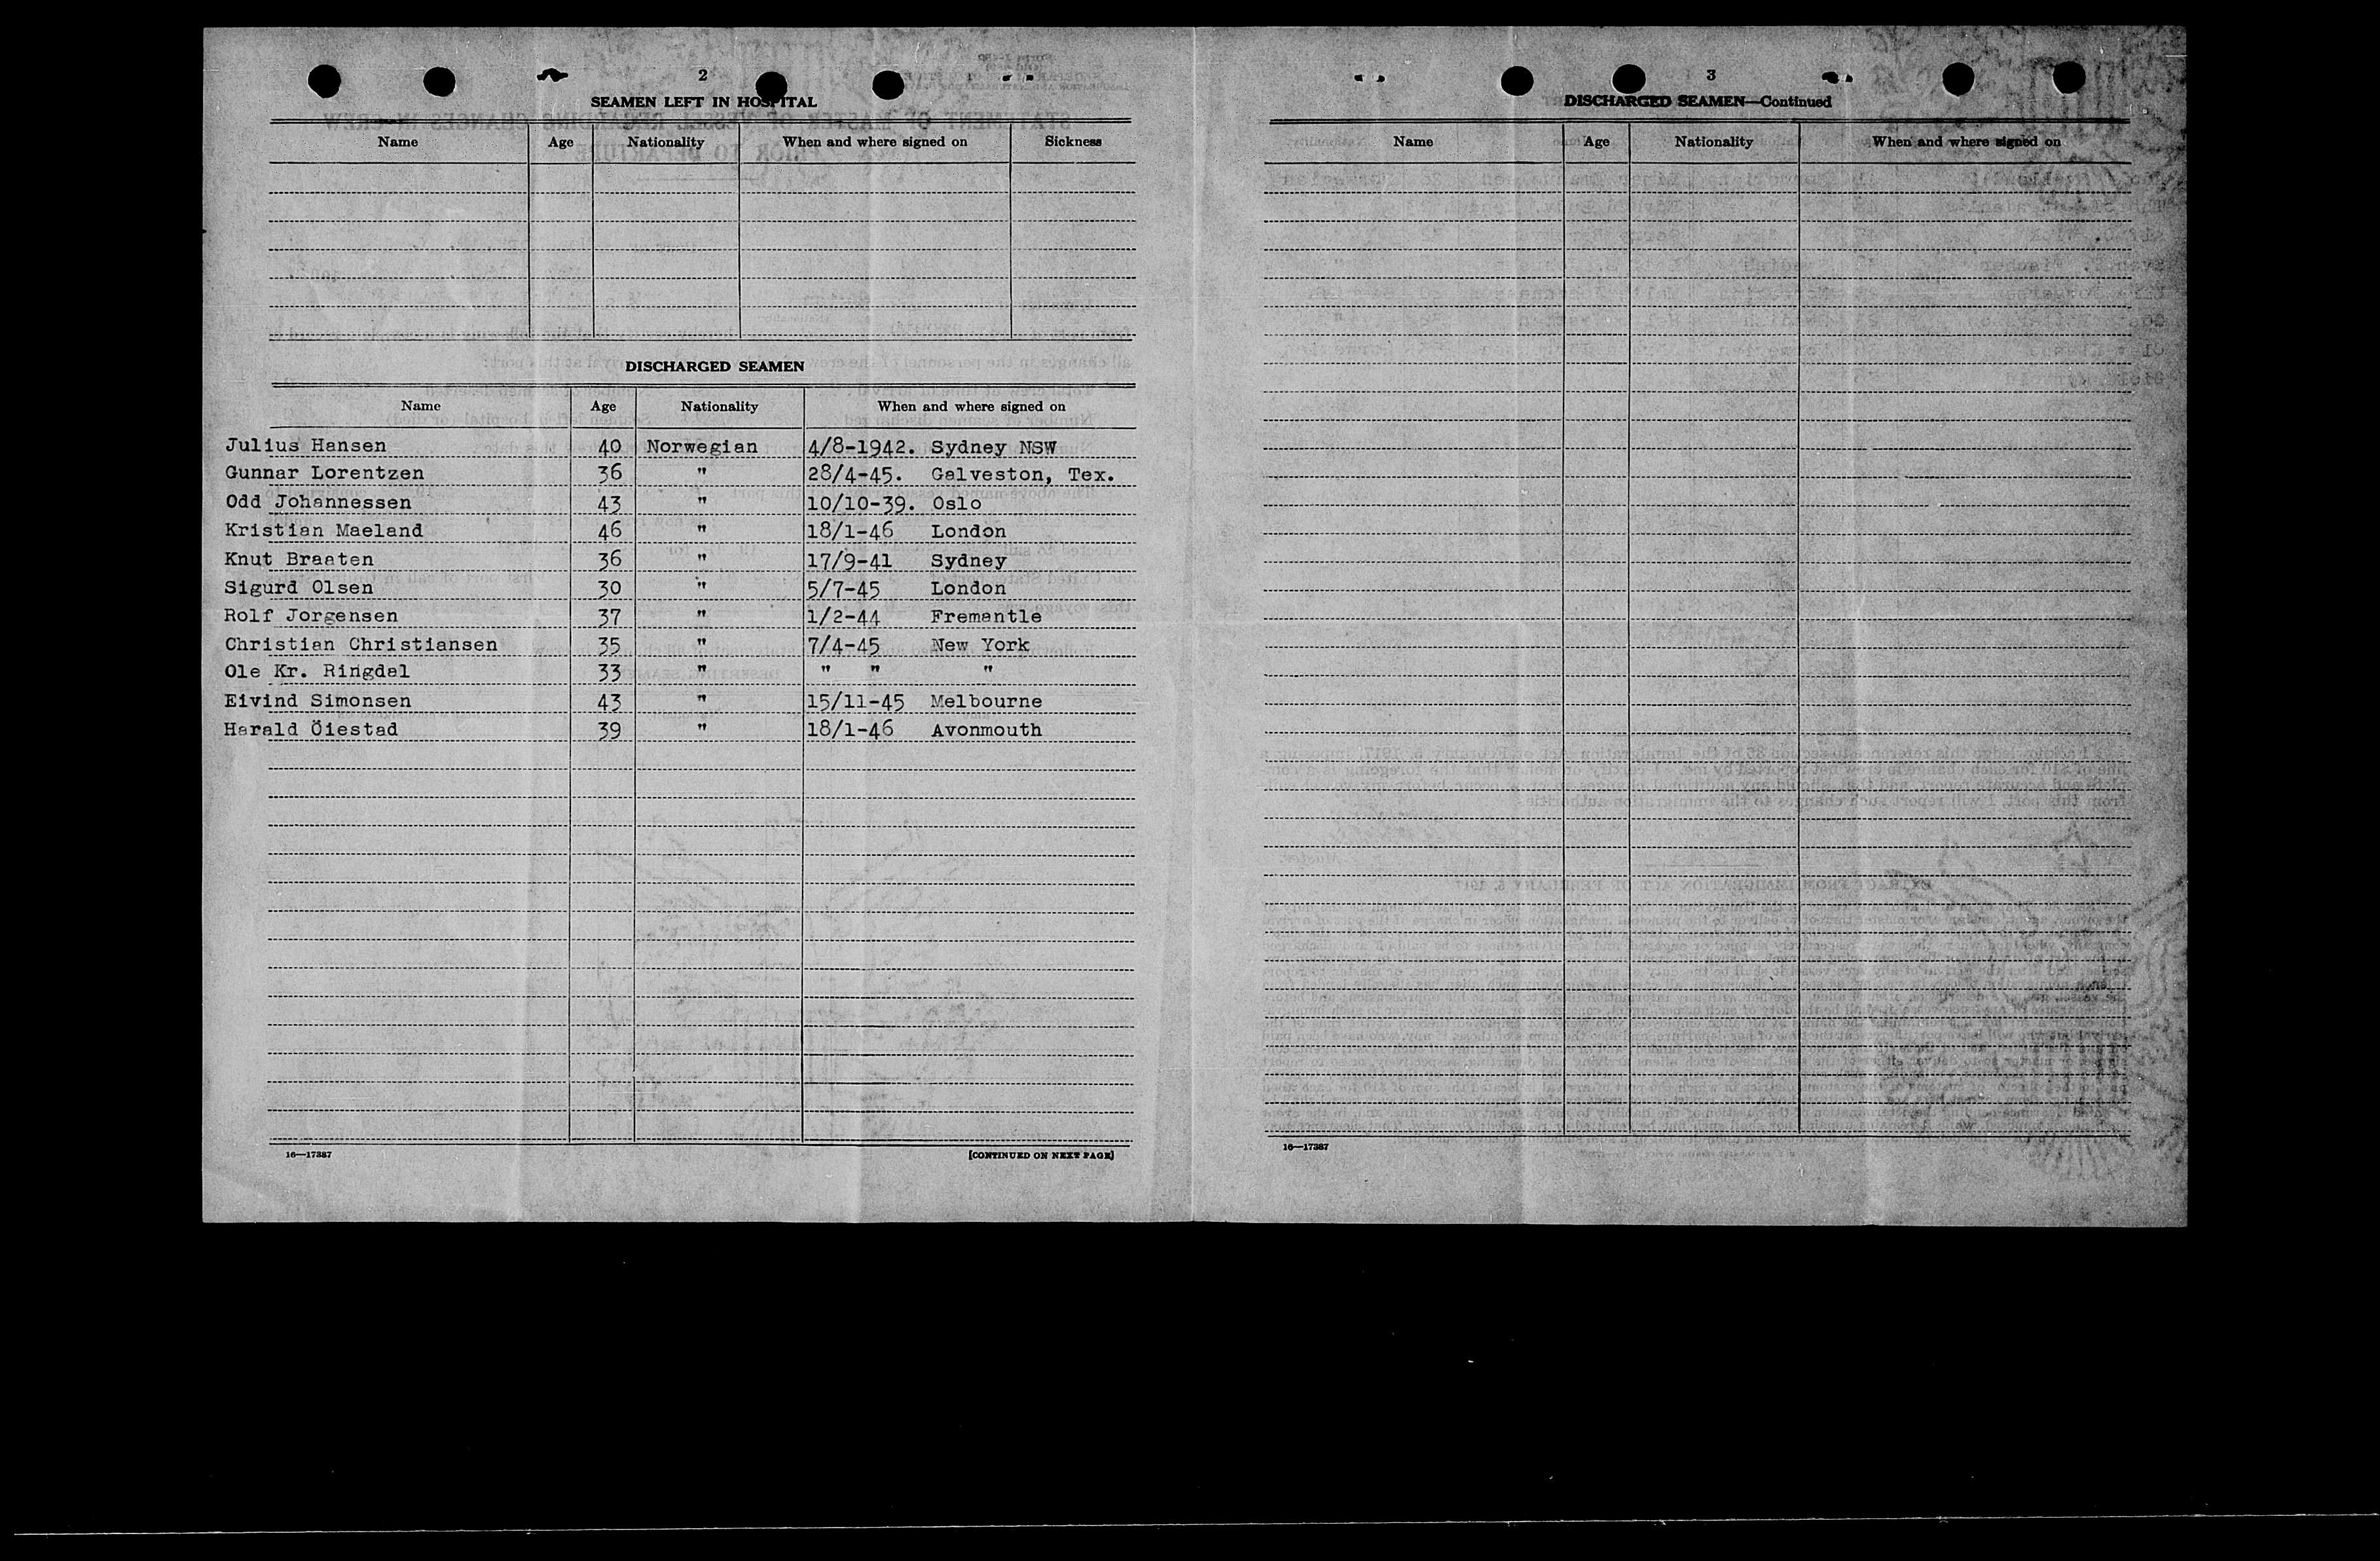 2
SEAMEN LEFT IN HOSPITAL
Name Age Nationality When and where signed on Sickness
DISCHARGED SEAMEN
Name Age Nationality When and where signed on
Julius Hansen 40 Norwegian 4/8-1942. Sydney NSW
Gunnar Lorentzen 36 " 28/4-45. Galveston, Tex.
Odd Johannessen 43 " 10/10-39. Oslo
Kristian Maeland 46 " 18/1-46 London
Knut Braaten 36 " 17/9-41 Sydney
Sigurd Olsen 30 " 5/7-45 London
Rolf Jorgensen 37 " 1/2-44 Fremantle
Christian Christiansen 35 " 7/4-45 New York
Ole Kr. Ringdal 33 " " " "
Eivind Simonsen 43 " 15/11-45 Melbourne
Harald Öiestad 39 " 18/1-46 Avonmouth
16—17387 [CONTINUED ON NEXT PAGE]
3
DISCHARGED SEAMEN—Continued
Name Age Nationality When and where signed on
16—17387